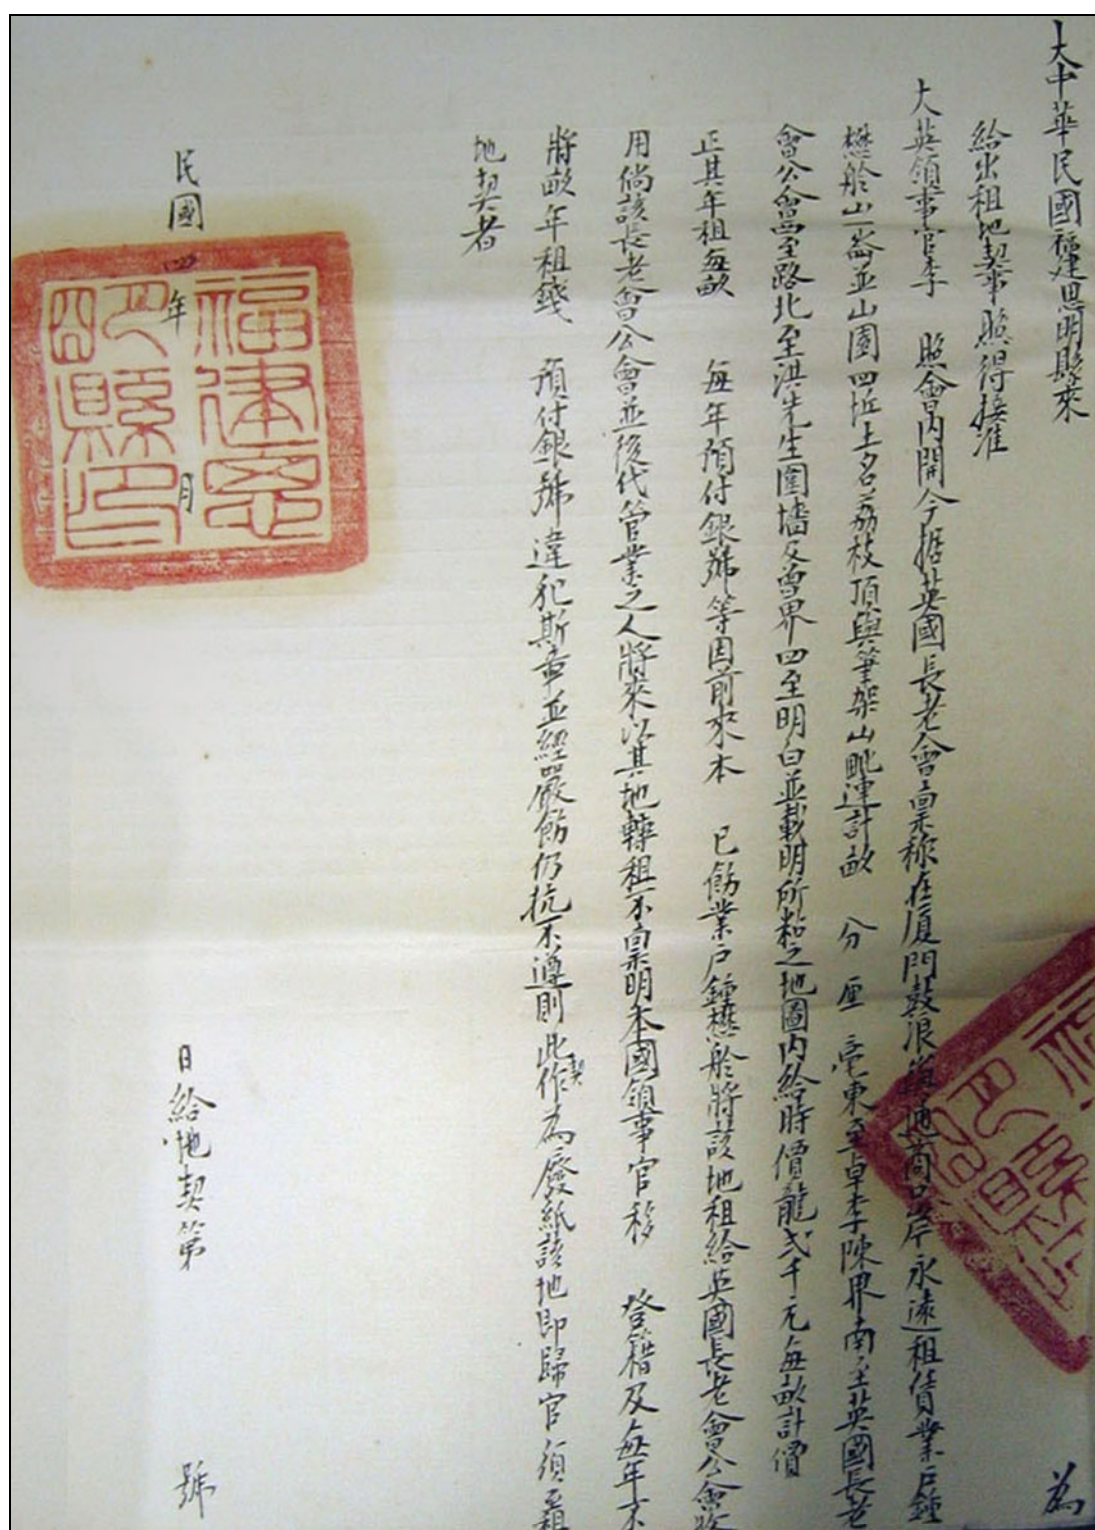 大中華民國福建思明縣來 為
給出租地契事照得接准
大英領事官李 照會內開今据英國長老會稟稱在厦門鼓浪嶼通商口岸永遠租賃業戶鍾
懋於山一崙並山園四坵土名荔枝頂與筆架山毗連計畝 分 厘 毫東至卓李陳界南至英國長老
會公會西至路北至洪先生圍墻及曾界四至明白並載明所粘之地圖內給時價龍弍千元每畝計價
正其年租每畝 每年預付銀號等因前來本 已飭業戶鍾懋於將該地租給英國長老會公會收
用倘該長老會公會並後代管業之人將來以其地轉租不稟明本國領事官移 登籍及每年不
將畝年租錢 預付銀號違犯斯章並經嚴飭仍抗不遵則此契作為廢紙該地即歸官須至租
地契者
民國四年 月 日給地契第 號
福建思明縣印